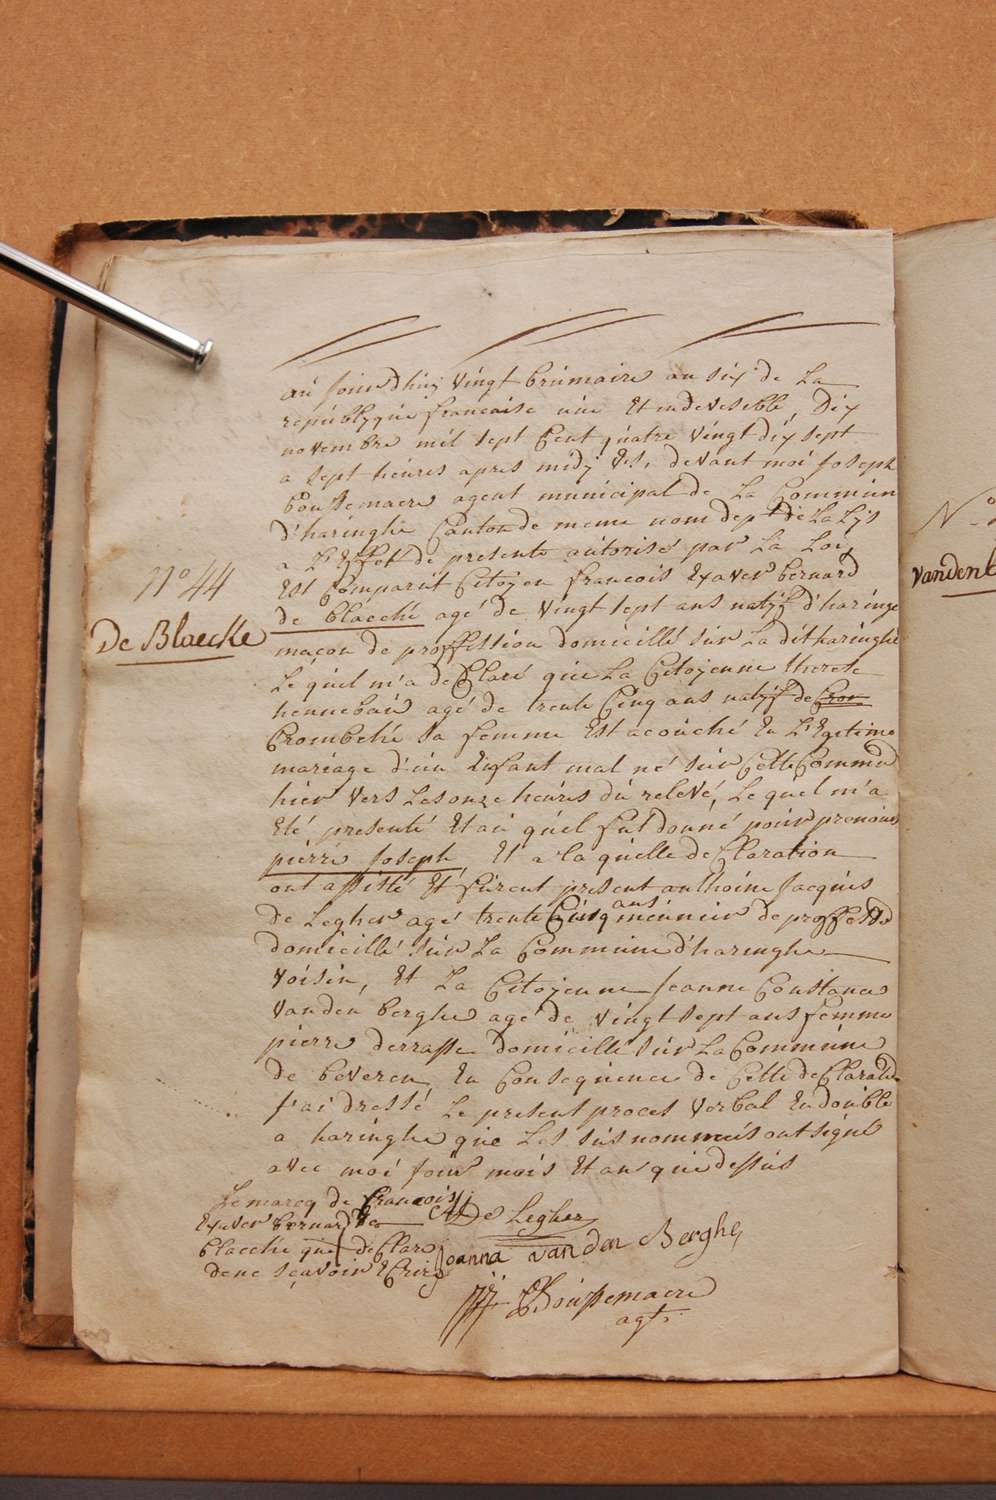 N° 44
De Blaecke
au jourdhuy vingt brumaire an six de La
republyque francaise une Et indevesebble, Dix
novembre mil sept Cent quatre vingt dix sept
a sept heures apres midy Es, devant moi Joseph
Boussemaere agent municipal de La Commun
d'haringhe Canton de meme nom dept de La Lys
a L'Effet de presente autorisé par La Loi,
Est Comparut Citoyen francois Exaver bernard
de blaecke agé de vingt sept ans natif d'haringe
maçon de proffession domicillé sur La dit haringhe
Le quel m'a de Claré que La Citoyenne therese
hennebau agé de trente Cinq ans natif de Crom
Crombeke sa femme Est acouché En L'Egetime
mariage d'un Enfant mal né sur Cette Commun
hier vers Les onze heures du relevé, Le quel m'a
Eté presenté Et au quel fut donné pour prenom
pierre Joseph, Et a la quelle de Claration
ont assisté Et furent present anthoine Jacques
de Legher agé trente Cinq ans meunier de proffess
domicillé sur La Commune d'haringhe
voisin, Et La Citoyenne Jeanne Constance
vanden berghe agé de vingt sept ans femme
pierre derasse domicillé sur La Commune
de beveren En Consequence de Cette de Claration
J'ai dressé Le present proces verbal En double
a haringhe que Les susnommeis ont signé
avec moi Jour mois Et an que dessus
Lemarcq de francois
Exaver bernard de
blaecke que de Clare
dene sçavoir Ecrire
AJ De Legher
Joanna van den Berghe,
JJ Boussemaere
agt.
N°
Vanden